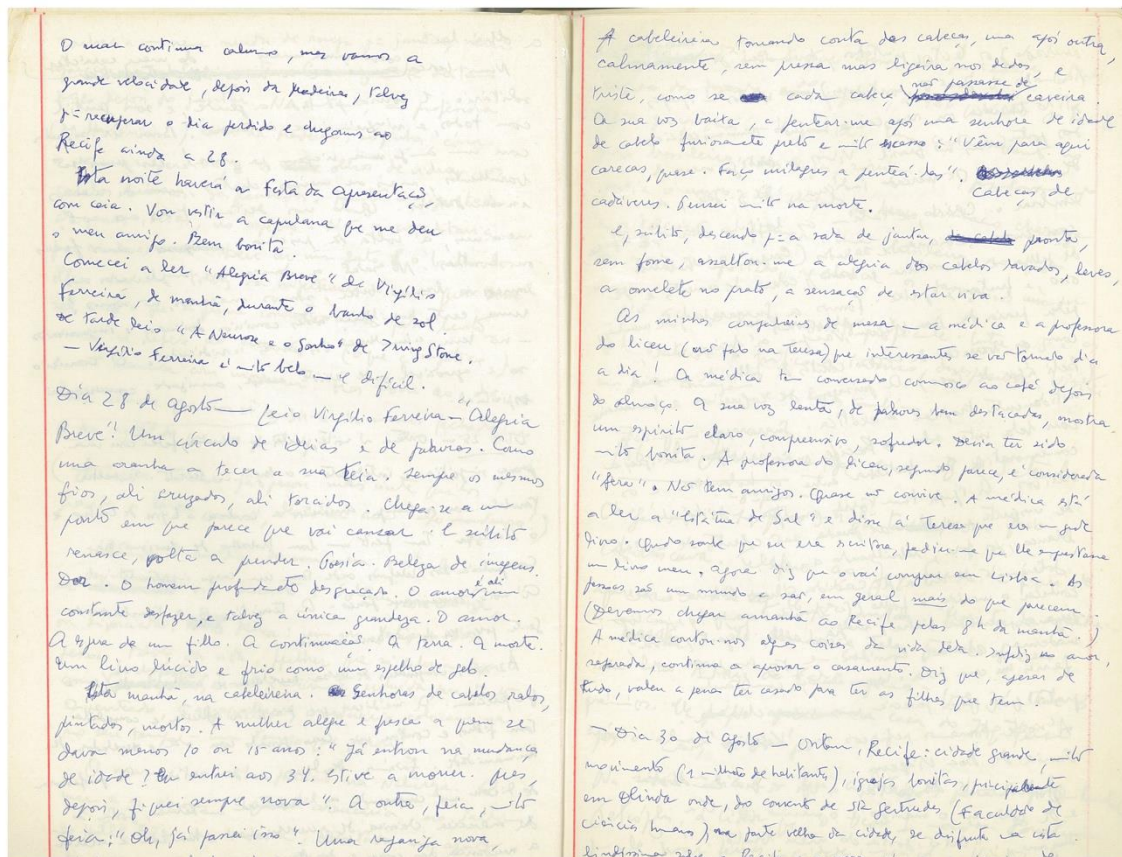 O mar continua calmo, mas vamos a
grande velocidade, depois da Madeira, talvez
p=recuperar o dia perdido e chegarmos ao
Recife ainda a 28.
Esta noite haverá a festa da apresentação,
com ceia. Vou vestir a capulana que me deu
o meu amigo. Bem bonita.
Comecei a ler "Alegria Breve" de Virgílio
Ferreira, de manhã, durante o banho de sol.
De tarde leio "A Neurose e o Sonho" de Irving Stone.
— Virgílio Ferreira é mto belo — e difícil.
Dia 28 de Agosto — Leio Virgílio Ferreira — "Alegria
Breve"! Um círculo de ideias e de palavras. Como
uma aranha a tecer a sua teia. Sempre os mesmos
fios, ali cruzados, ali torcidos. Chega-se a um
ponto em que parece que vai cansar. E súbito
renasce, volta a prender. Poesia. Beleza de imagens.
Dor. O homem profundamte desgraçado. O amor é ali um
constante desfazer, e talvez a única grandeza. O amor.
A espera de um filho. A continuação. A terra. A morte.
Um livro lúcido e frio como um espelho de gelo.
Esta manhã, na cabeleireira. Senhoras de cabelos ralos,
pintados, mortos. A mulher alegre e fresca a quem se
dava menos 10 ou 15 anos: "Já entrou na mudança
de idade? Eu entrei aos 34. Estive a morrer. Mas,
depois, fiquei sempre nova". A outra, feia, mto
feia: "Oh, já passei isso". Uma rapariga nova,
A cabeleireira tomando conta das cabeças, uma após outra,
calmamente, sem pressa mas ligeira nos dedos, e
triste, como se cada cabeça não passasse de caveira.
A sua voz baixa, a pentear-me após uma senhora de idade
de cabelo furiosamente preto e mto escasso: "Vêm para aqui
carecas, quase. Faço milagres a penteá-las". Cabeças de
cadáveres. Pensei mto na morte.
E, súbito, descendo p=a sala de jantar, pronta,
sem fome, assaltou-me a alegria dos cabelos lavados, leves,
a omelete no prato, a sensação de estar viva.
As minhas companheiras de mesa — a médica e a professora
do liceu (não falo na Teresa) que interessantes se vão tornando dia
a dia! A médica tem conversado connosco ao café depois
do almoço. A sua voz lenta, de palavras bem destacadas, mostra
um espírito claro, compreensivo, sofredor. Devia ter sido
mto bonita. A professora do liceu, segundo parece, é considerada
"fera". Não tem amigos. Quase não convive. A médica está
a ler a "Estátua de Sal" e disse à Teresa que era um gde
livro. Qudo soube que eu era escritora, pediu-me que lhe emprestasse
um livro meu. Agora diz que o vai comprar em Lisboa. As
pessoas são um mundo e são, em geral mais do que parecem.
(Devemos chegar amanhã ao Recife pelas 8h da manhã.)
A médica contou-nos algas coisas da vida dela. Infeliz no amor,
separada, continua a aprovar o casamento. Diz que, apesar de
tudo, valeu a pena ter casado para ter as filhas que tem.
— Dia 30 de Agosto — Ontem, Recife: cidade grande, mto
movimento (1 milhão de habitantes), igrejas bonitas, principalmente
em Olinda onde, do convento de Sta Gertrudes (Faculdade de
Ciências humanas) na parte velha da cidade, se disfruta na vista
lindíssima sobre o Recife